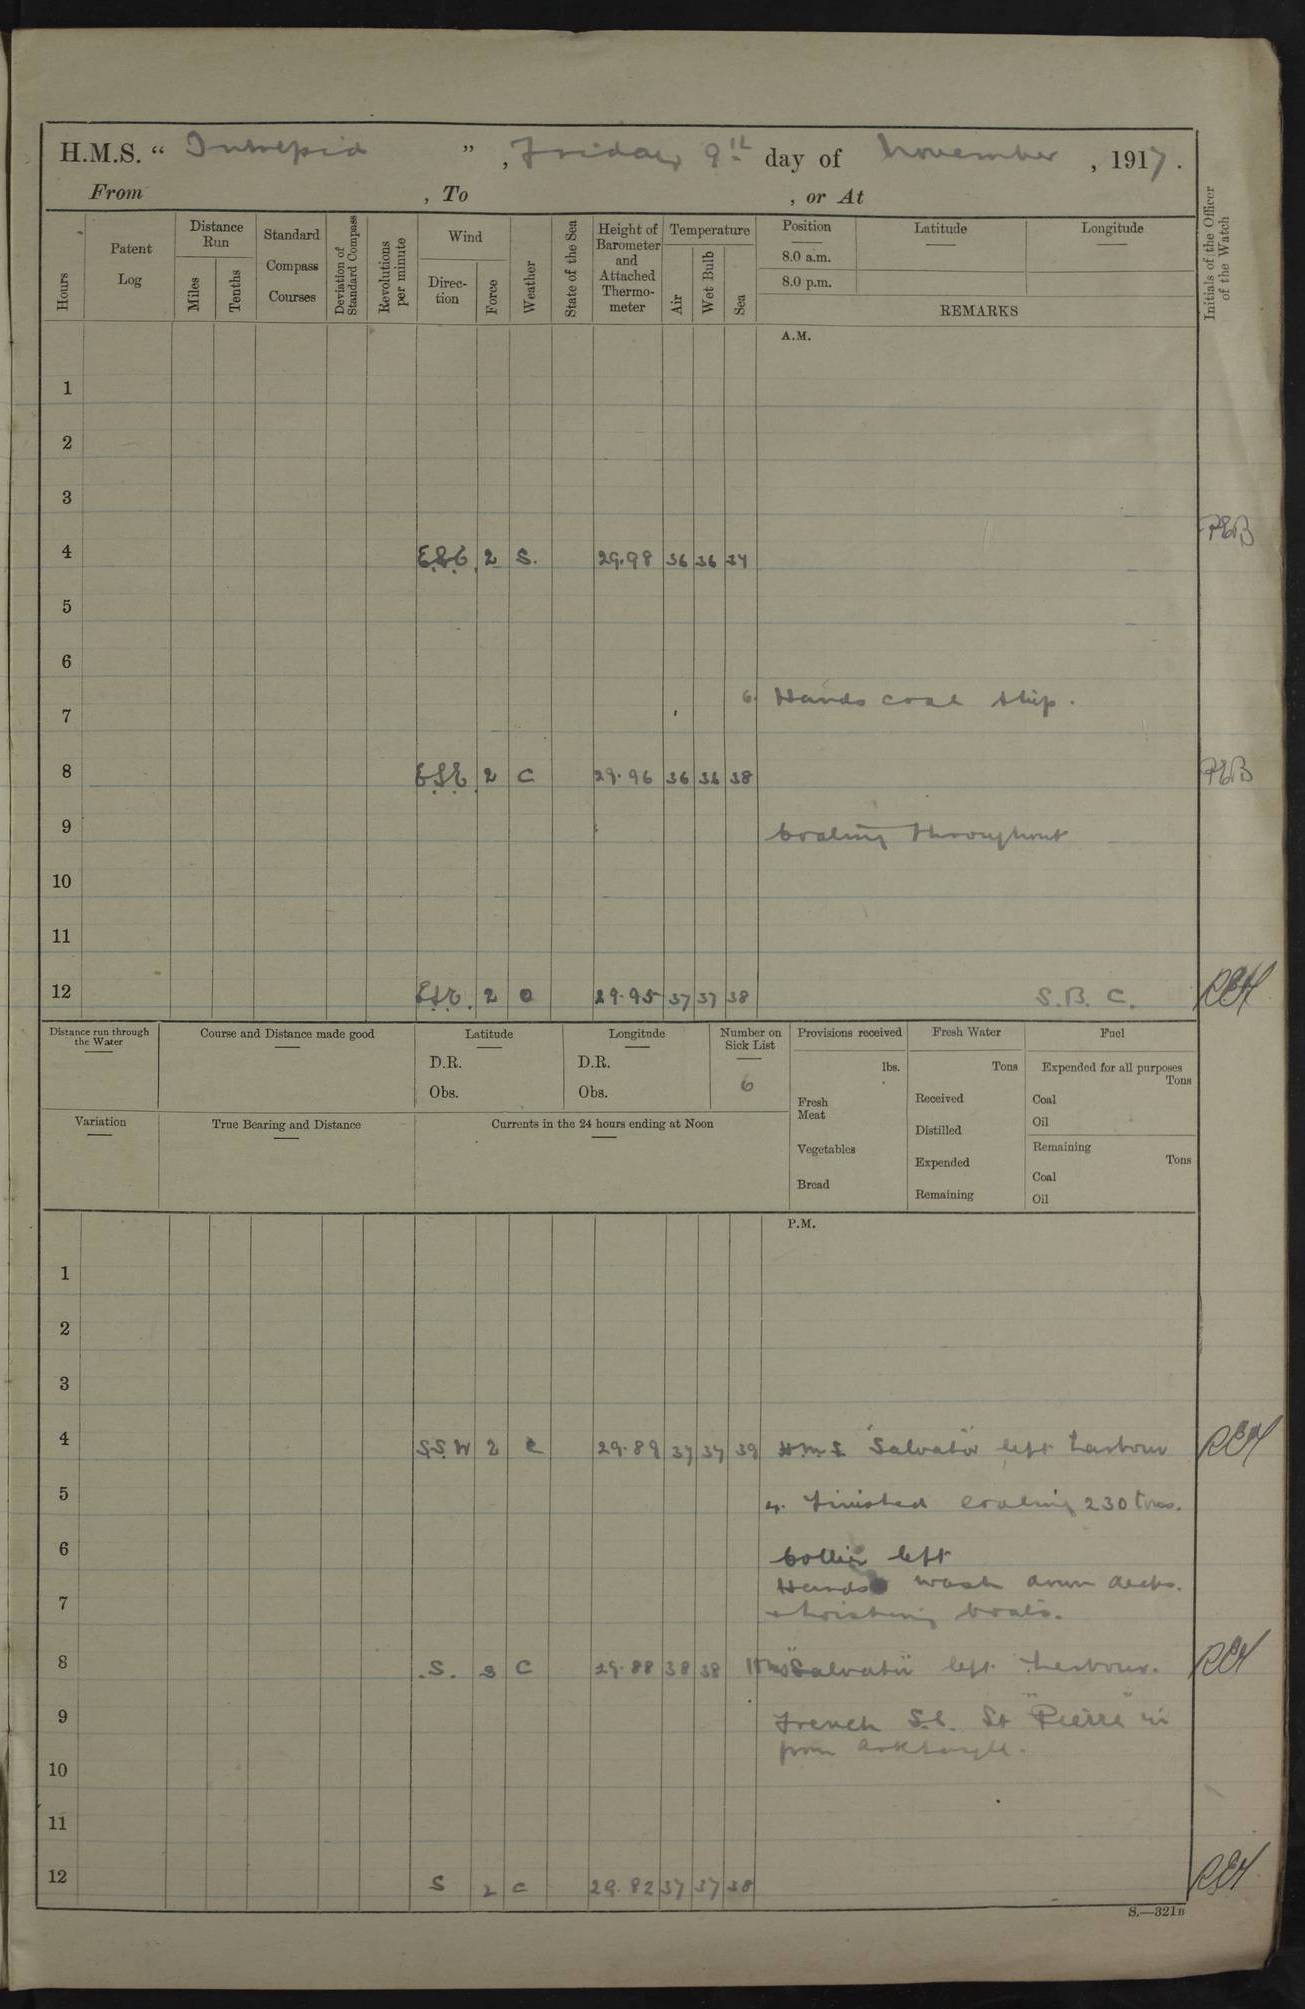 H.M.S. “ Intrepid ” , Friday 9th day of November , 1917 .
From , To , or At
Hours
Patent Log
Distance Run
Miles
Tenths
Standard Compass Courses
Deviation of Standard Compass
Revolutions per minute
Wind
Direction
Force
Weather
State of the Sea
Height of Barometer and Attached Thermometer
Temperature
Air
Wet Bulb
Sea
Position
8.0 a.m.
8.0 p.m.
Latitude
Longitude
REMARKS
Initials of the Officer of the Watch
A.M.
1
2
3
4 E.S.E. 2 S. 29.98 36 36 37 PEB
5
6
6. Hands coal ship.
7
8 E.S.E. 2 C 29.96 36 36 38 PEB
9 Coaling throughout
10
11
12 E.S.E. 2 O 29.95 37 37 38 S.B.C.
Distance run through the Water
Course and Distance made good
Latitude
D.R.
Obs.
Longitude
D.R.
Obs.
Number on Sick List
6
Provisions received
lbs.
Fresh Meat
Vegetables
Bread
Fresh Water
Tons
Received
Distilled
Expended
Remaining
Fuel
Expended for all purposes
Tons
Coal
Oil
Remaining
Tons
Coal
Oil
Variation
True Bearing and Distance
Currents in the 24 hours ending at Noon
P.M.
1
2
3
4 S.S.W 2 C 29.89 37 37 39 H.M.S. "Salvator" left harbour
5 4. Finished coaling 230 tons.
6 Collier left
Hands wash down decks.
7 & hoisting boats.
8 S. 3 C 29.88 38 38 HMS "Salvator" left harbour.
9 French S.S. St "Pierre" in
from Arkhangel.
10
11
12 S 2 C 29.82 37 37 38
S.—321B